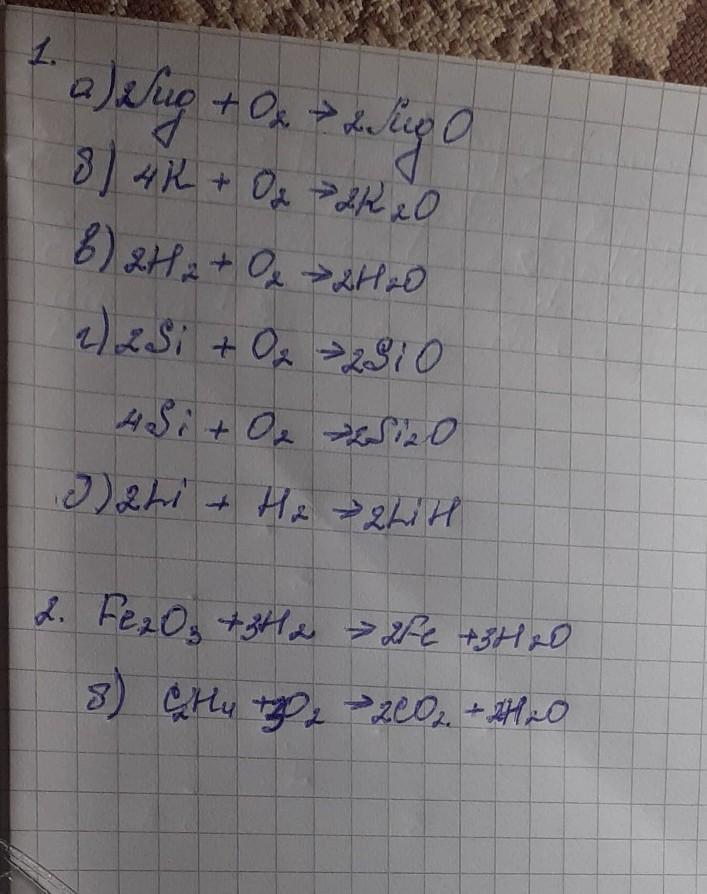 1.
а) 2Mg + O₂ → 2MgO
б) 4K + O₂ → 2K₂O
в) 2H₂ + O₂ → 2H₂O
г) 2Si + O₂ → 2SiO
4Si + O₂ → 2Si₂O
д) 2Li + H₂ → 2LiH
2. Fe₂O₃ + 3H₂ → 2Fe + 3H₂O
б) C₂H₄ + 3O₂ → 2CO₂ + 2H₂O